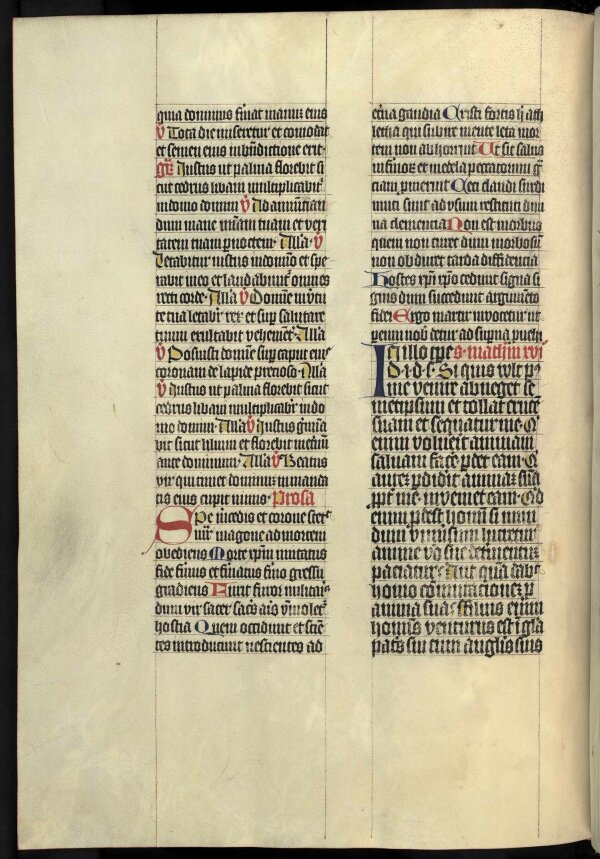 quia dominus firmat manum eius
V Tota die miseretur et comodat
et semen eius in benedictione erit·
Gr Justus ut palma florebit si
cut cedrus libani multiplicabitur
in domo domini V Ad annuncian
dum mane misericordiam tuam et veri
tatem tuam per noctem· Alla· V
Letabitur iustus in domino et spe
rabit in eo et laudabuntur omnes
recti corde· Alla V Domine in virtu
te tua letabitur rex et super salutare
tuum exultabit vehementer· Alla
V Posuisti domine super caput eius
coronam de lapide precioso· Alla
V Justus ut palma florebit sicut
cedrus libani multiplicabitur in do
mo domini· Alla V Justus germina
bit sicut lilium et florebit in eternum
ante dominum· Alla V Beatus
vir qui timet dominum in manda
tis eius cupit nimis· Prosa
Spe mercedis et corone stetit
magone ad mortem
obediens Morte christum imitatus
fide firmus et firmatus firmo gressu
gradiens Furit furor
dum vir sacer sacris aris
hostia Quem occidunt et
tes introducunt nescientes ad
eterna gaudia Christi fortis hic ath
letha qui subiit mente leta mor
tem non abhorruit Ut sit salus
infirmorum et medela peccatorum gra
ciam promeruit Ceci claudi surdi
muti sunt ad usum restituti divi
na clemencia Non est morbus
quem non curet dum morbosum
non obduret tarda diffidencia
Hostes christi christo cedunt signa si
gnis dum succedunt argumento
fidei Ergo martir invocetur ut
per eum nobis detur ad superna provehi
In illo tempore s· mathm xvi
D· i· d· s· Si quis vult post
me venire abneget se
metipsum et tollat crucem
suam et sequatur me· Qui
enim voluerit animam
salvam facere perdet eam· Qui
autem perdiderit animam suam
propter me· inveniet eam· Quid
enim prodest homini si mun
dum universum lucretur
anime vero sue detrimentum
paciatur· Aut quam dabit
homo commutacionem pro
anima sua· Filius enim
hominis venturus est in gloria
patris sui cum angelis suis